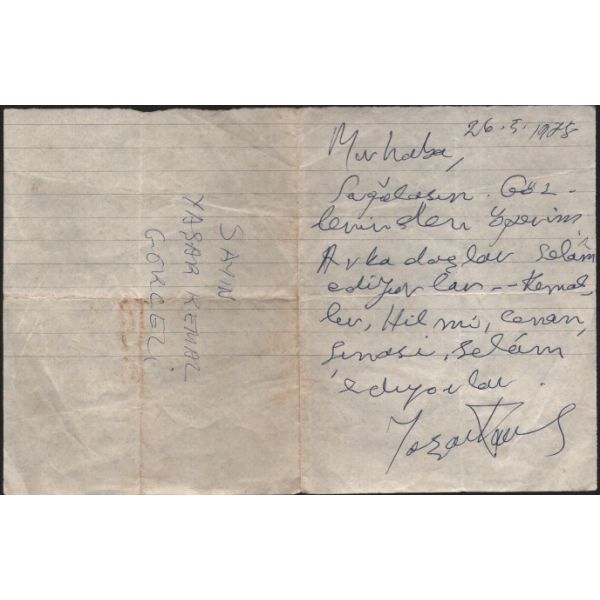 26.5.1975
Merhaba,
Sağolasın. Göz-
lerinden öperim
Arkadaşlar selam
ediyorlar -- Kemal-
ler, Hilmi, Canan,
Şinasi, selâm
ediyorlar.
Yaşar Kemal
SAYIN
YAŞAR KEMAL
GÖKÇELİ